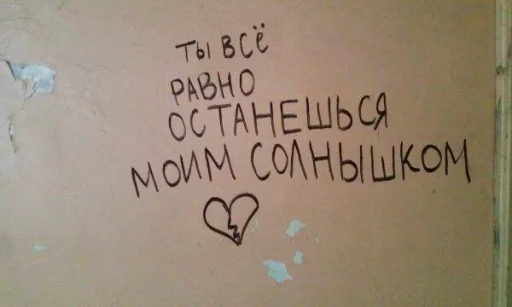 ТЫ ВСЁ
РАВНО
ОСТАНЕШЬСЯ
МОИМ СОЛНЫШКОМ